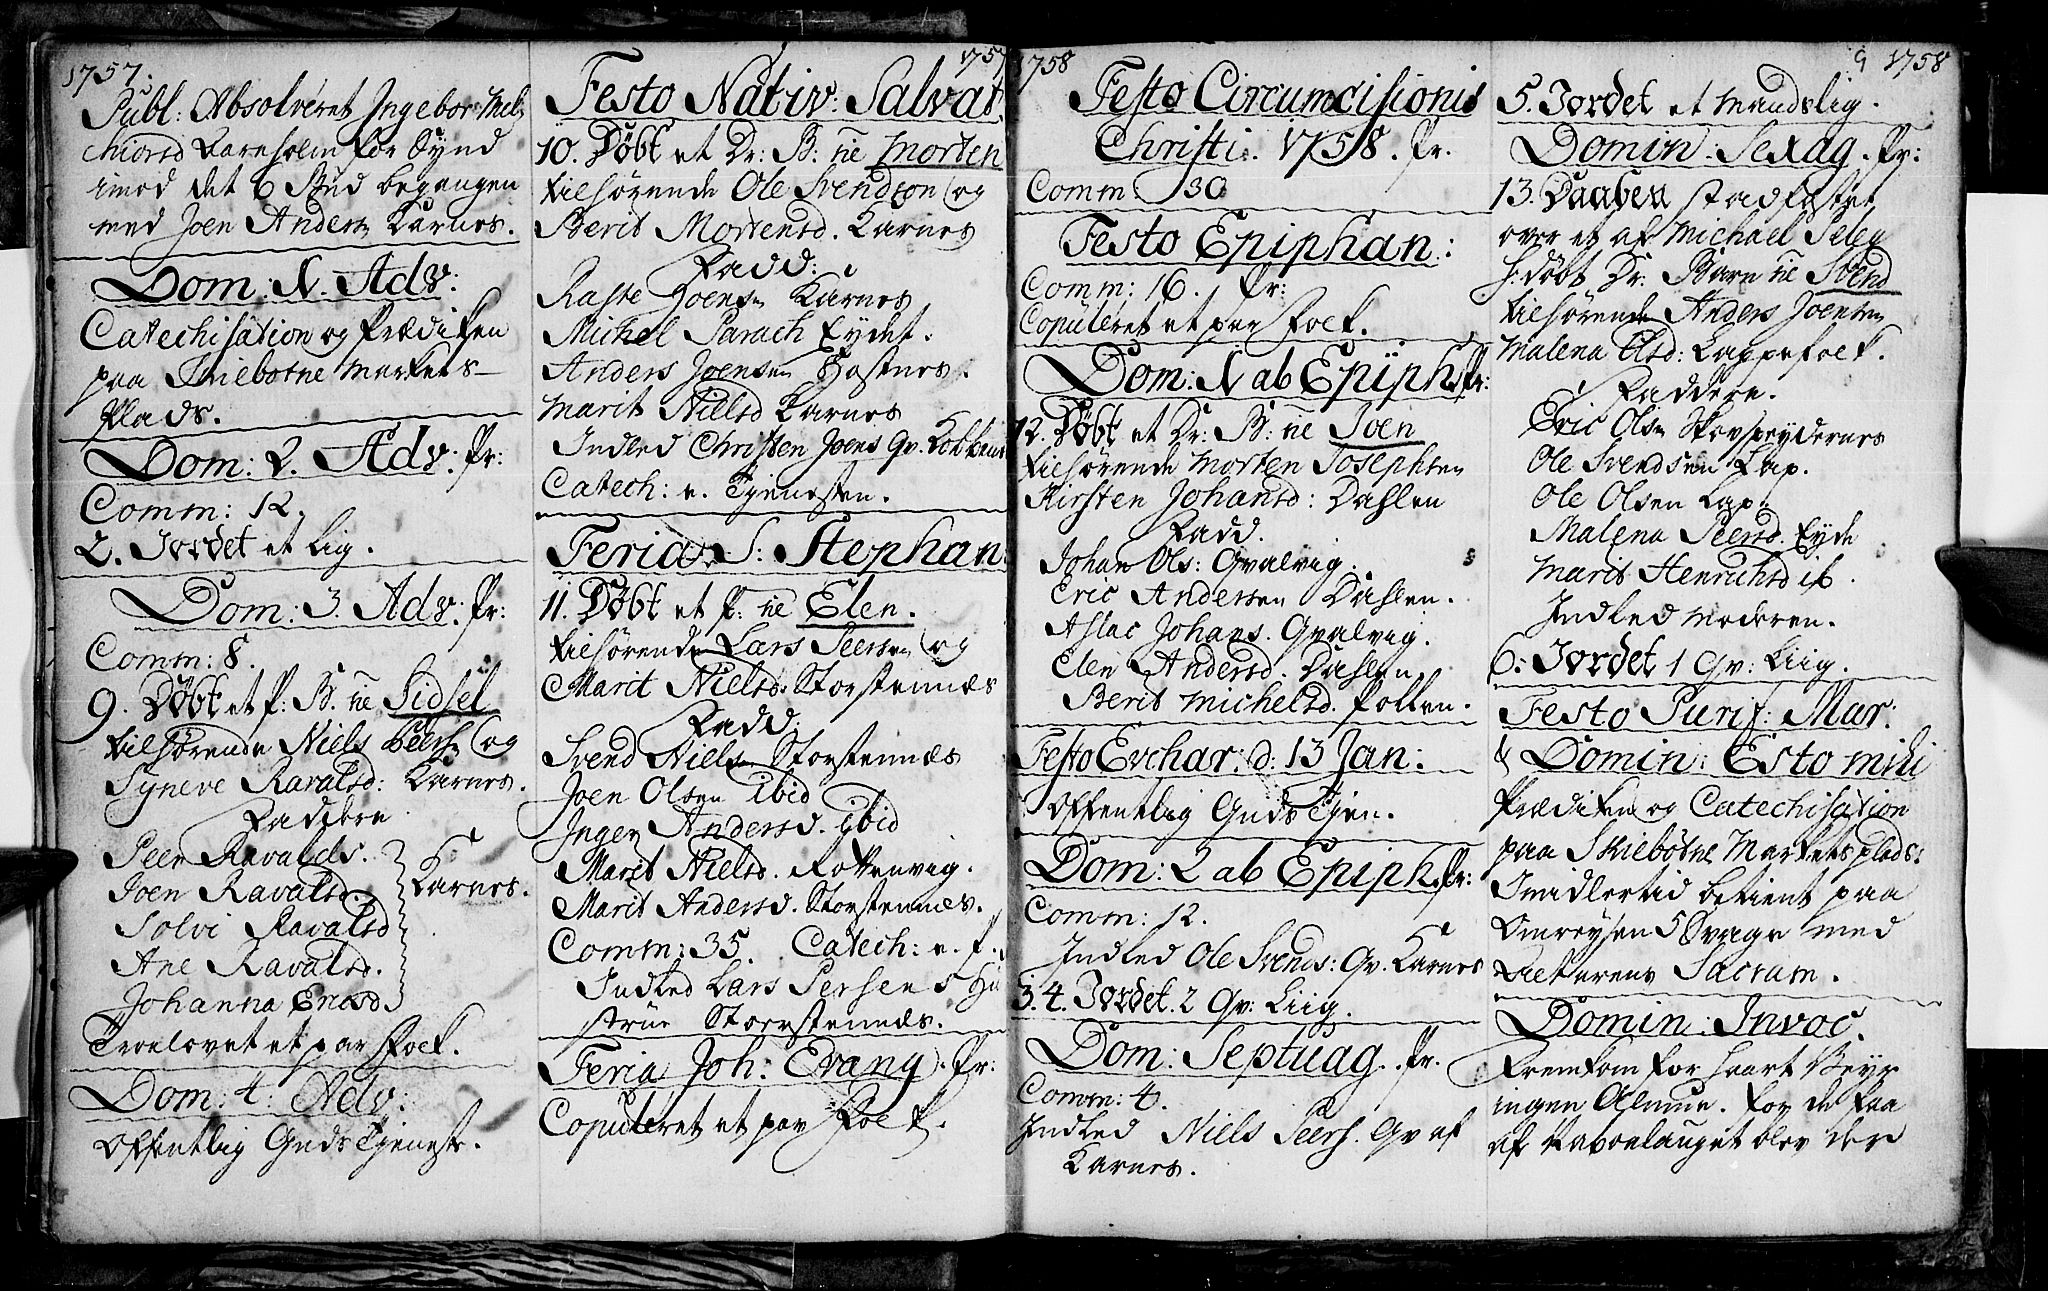 1757.
Publ: Absolveret Ingebor Mel
chiorsd Karnholm for Synd
imod det 6 Bud begangen
med Joen Anders: Karnes.
Dom: 1. Adv:
Catechisation og Prædiken
paa Skiebotne Markets-
Plads.
Dom: 2. Adv: Pr:
Comm: 12.
2. Jordet et Lig.
Dom: 3. Adv: Pr:
Comm: 8.
9. Døbt et P: B: ne Sidsel
tilhørende Niels Peers: og
Syneve Ravalsd: Karnes.
Faddere
Peer Ravalds.
Joen Ravalsd.
Solvi Ravalsd
Ane Ravalsd.
Johanna Enersd
Karnes.
Troelovet et par Folk.
Dom: 4. Adv:
Offentlig Guds Tjeneste.
1757
Festo Nativ: Salvat.
10. Døbt et Dr: B: ne Morten
tilhørende Ole Svendsøn og
Berit Mortensd. Karnes
Fadd:
Raste Joensen Karnes
Michel Parach Eydet.
Anders Joensen Hastnes.
Marit Nielsd Karnes
Indled Christen Joens Qv.
Catech: e. Tjenesten.
Feria S: Stephan:
11. Døbt et P: ne Elen.
tilhørende Lars Peersen og
Marit Nielsd. Storstennes
Fadd:
Svend Niels. Storstennes
Joen Olsen ibid
Inger Andersd. ibid
Marit Nielsd. Rottenvig.
Marit Andersd. Storstennes.
Comm: 35. Catech: e. P.
Indled Lars Persens Hu
strue Storstennes.
Feria Joh: Evang. Pr:
Copuleret et par Folk.
1758
Festo Circumcisionis
Christi. 1758. Pr.
Comm 30
Festo Epiphan:
Comm: 16. Pr:
Copuleret et par Folk.
Dom: 1 ab Epiph. Pr:
12. Døbt et Dr: B: ne Joen
tilhørende Morten Josephsen
Kirsten Johansd: Dahlen
Fadd.
Johan Ols: Qvalvig.
Eric Andersen Dahlen.
Aslac Johans. Qvalvig.
Elen Andersd: Dahlen
Berit Michelsd. Pollen.
Festo Evchar: d: 13 Jan:
Offentlig Guds Tjen.
Dom: 2 ab Epiph. Pr:
Comm: 12.
Indled Ole Svends: Qv. Karnes
3. 4. Jordet 2 Qv: Liig.
Dom: Septuag. Pr.
Comm: 4.
Indled Niels Peers. Qv af
Karnes.
9 1758
5. Jordet et Mandslig.
Domin: Sexag. Pr:
13. Daaben stadfæstet
over et af Michael Seley
h: døbt Dr: Barn ne Svend
tilhørende Anders Joensen
Malena Olsd: Lappefolk.
Faddere.
Eric Olsen
Ole Svendsen Lap.
Ole Olsen Lap.
Malena Peersd. Eyde
Marit Henrichsd ib.
Indled Moderen.
6. Jordet 1 Qv: Liig.
Festo Purif: Mar:
& Domin: Esto mihi
Prædiken og Catechisation
paa Skiebotne Markets plads:
Imidlertid betient paa
Omreysen 5 Svage med
Altarens Sacram.
Domin: Invoc.
Fremkom for haart Veyr
ingen Almue. For de faa
af blev der